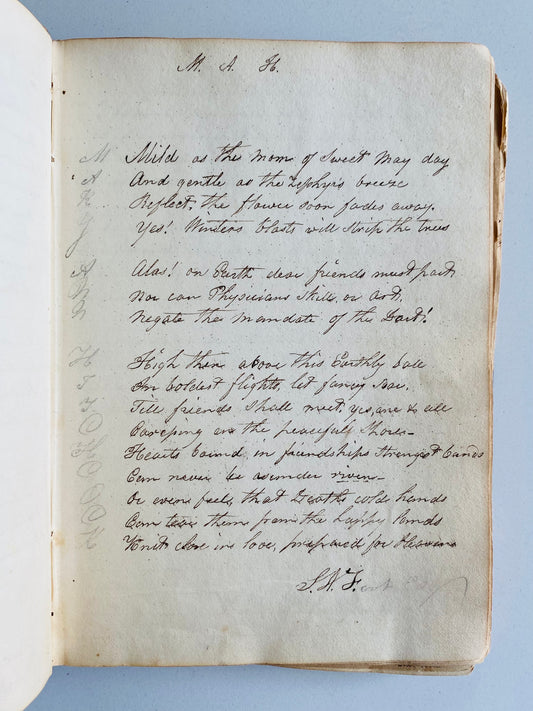 M. A. H.
Mild as the morn of Sweet May day
And gentle as the Zephyrs breeze
Reflect, the flower soon fades away.
Yes! Winters blasts will strip the trees
Alas! on Earth dear friends must part
Nor can Physicians Skill, or art,
Negate the mandate of the Dart!
High then above this Earthly ball
In boldest flights, let fancy soar,
Till friends shall meet, yes, one & all
on the peaceful Shore–
Hearts bound in friendships Strongest bands
Can never be asunder riven–
Or even feel, that Deaths cold hands
Can tear them from the happy lands
Knit close in love, prepared for Heaven
S. N. F.